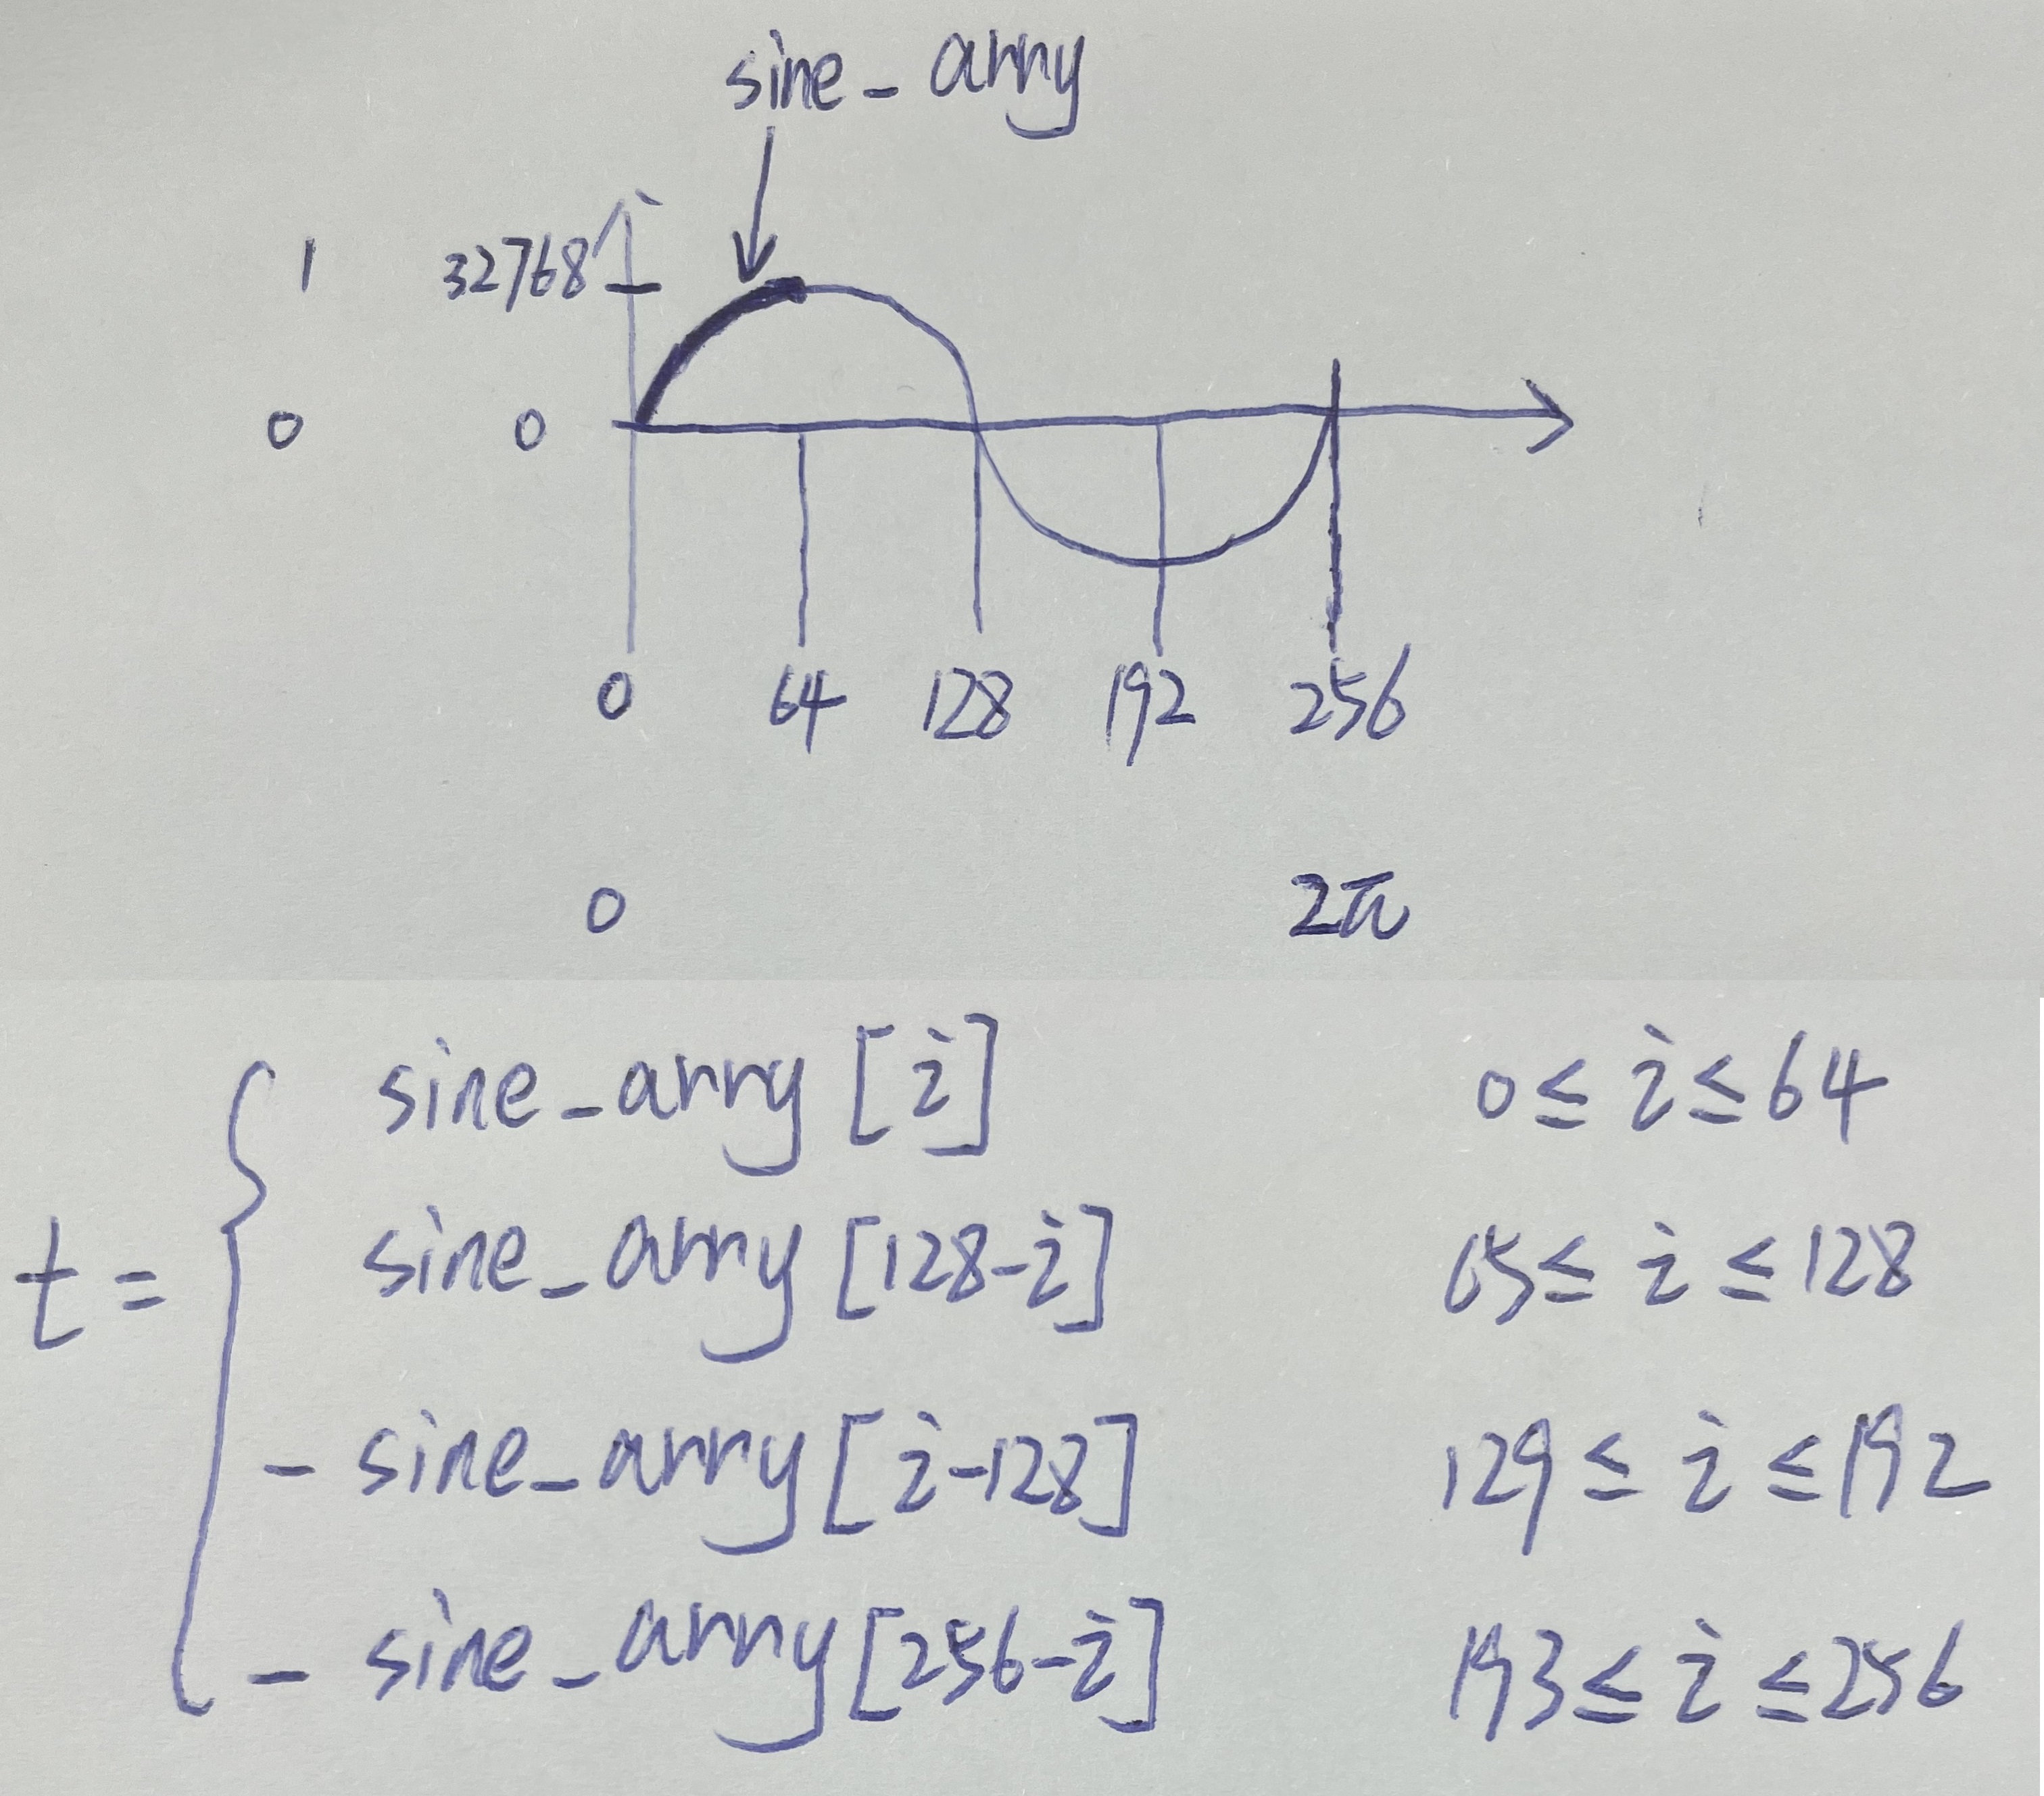 sine_arry
1 32768
0 0
0 64 128 192 256
0 2π
sine_arry [i] 0 ≤ i ≤ 64
sine_arry [128-i] 65 ≤ i ≤ 128
t =
- sine_arry [i-128] 129 ≤ i ≤ 192
- sine_arry [256-i] 193 ≤ i ≤ 256